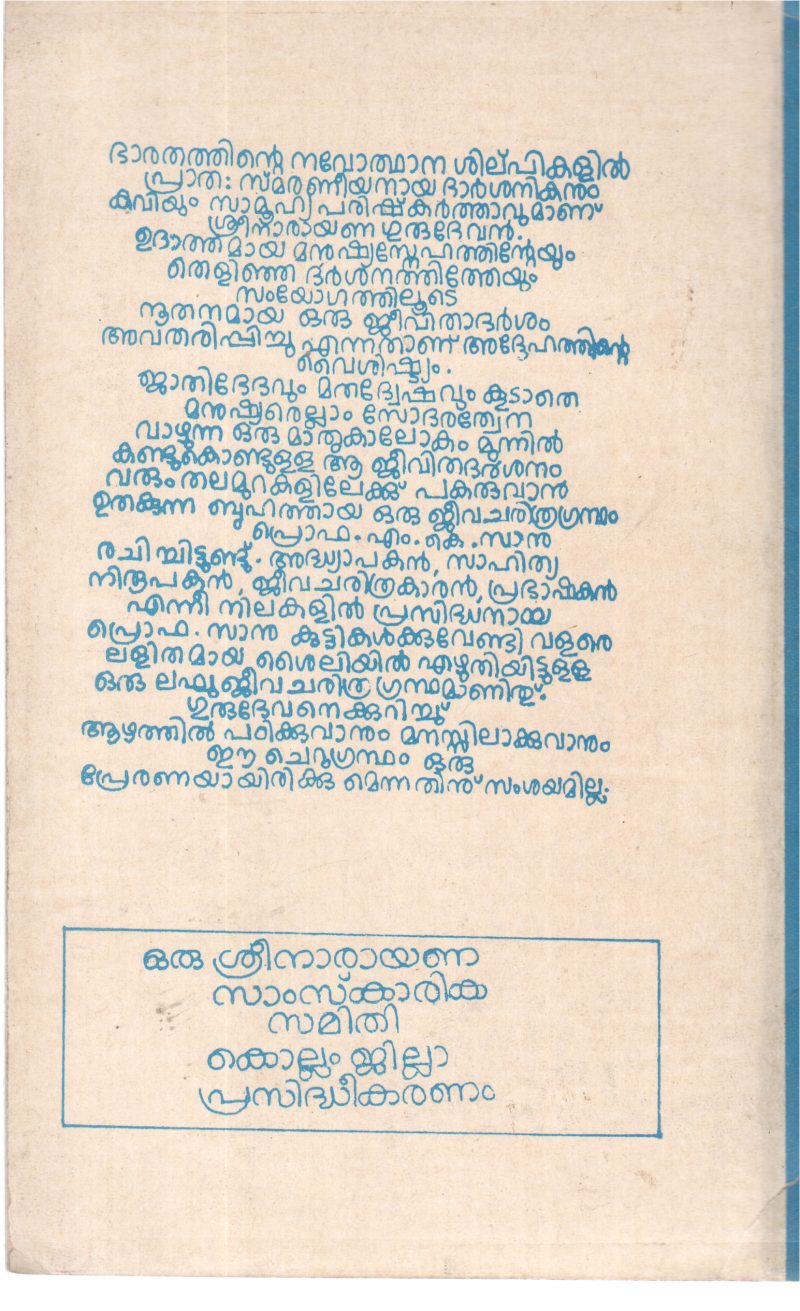 ഭാരതത്തിന്റെ നവോത്ഥാന ശില്പികളിൽ
പ്രാത: സ്മരണീയനായ ദാർശനികനും
കവിയും സാമൂഹ്യപരിഷ്കർത്താവുമാണ്
ശ്രീനാരായണ ഗുരുദേവൻ.
ഉദാത്തമായ മനുഷ്യസ്നേഹത്തിന്റേയും
തെളിഞ്ഞ ദർശനത്തിന്റേയും
സംയോഗത്തിലൂടെ
നൂതനമായ ഒരു ജീവിതാദർശം
അവതരിപ്പിച്ചു എന്നതാണ് അദ്ദേഹത്തിന്റെ
വൈശിഷ്ട്യം.
ജാതിഭേദവും മതദ്വേഷവും കൂടാതെ
മനുഷ്യരെല്ലാം സോദരത്വേന
വാഴുന്ന ഒരു മാതൃകാലോകം മുന്നിൽ
കണ്ടുകൊണ്ടുള്ള ആ ജീവിതദർശനം
വരുംതലമുറകളിലേക്ക് പകരുവാൻ
ഉതകുന്ന ബൃഹത്തായ ഒരു ജീവചരിത്രഗ്രന്ഥം
പ്രൊഫ. എം. കെ. സാനു
രചിച്ചിട്ടുണ്ട്. അദ്ധ്യാപകൻ, സാഹിത്യ
നിരൂപകൻ, ജീവചരിത്രകാരൻ, പ്രഭാഷകൻ
എന്നീ നിലകളിൽ പ്രസിദ്ധനായ
പ്രൊഫ. സാനു കുട്ടികൾക്കുവേണ്ടി വളരെ
ലളിതമായ ശൈലിയിൽ എഴുതിയിട്ടുള്ള
ഒരു ലഘുജീവചരിത്ര ഗ്രന്ഥമാണിത്.
ഗുരുദേവനെക്കുറിച്ച്
ആഴത്തിൽ പഠിക്കുവാനും മനസ്സിലാക്കുവാനും
ഈ ചെറുഗ്രന്ഥം ഒരു
പ്രേരണയായിരിക്കുമെന്നതിന് സംശയമില്ല.
ഒരു ശ്രീനാരായണ
സാംസ്കാരിക
സമിതി
കൊല്ലം ജില്ലാ
പ്രസിദ്ധീകരണം